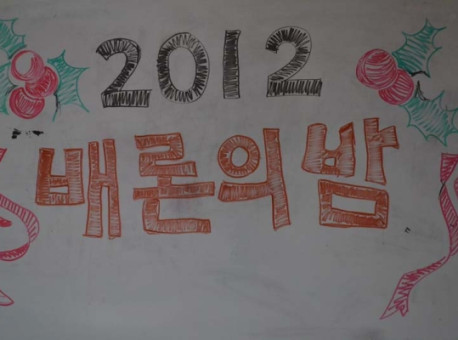 2012
배론의밤